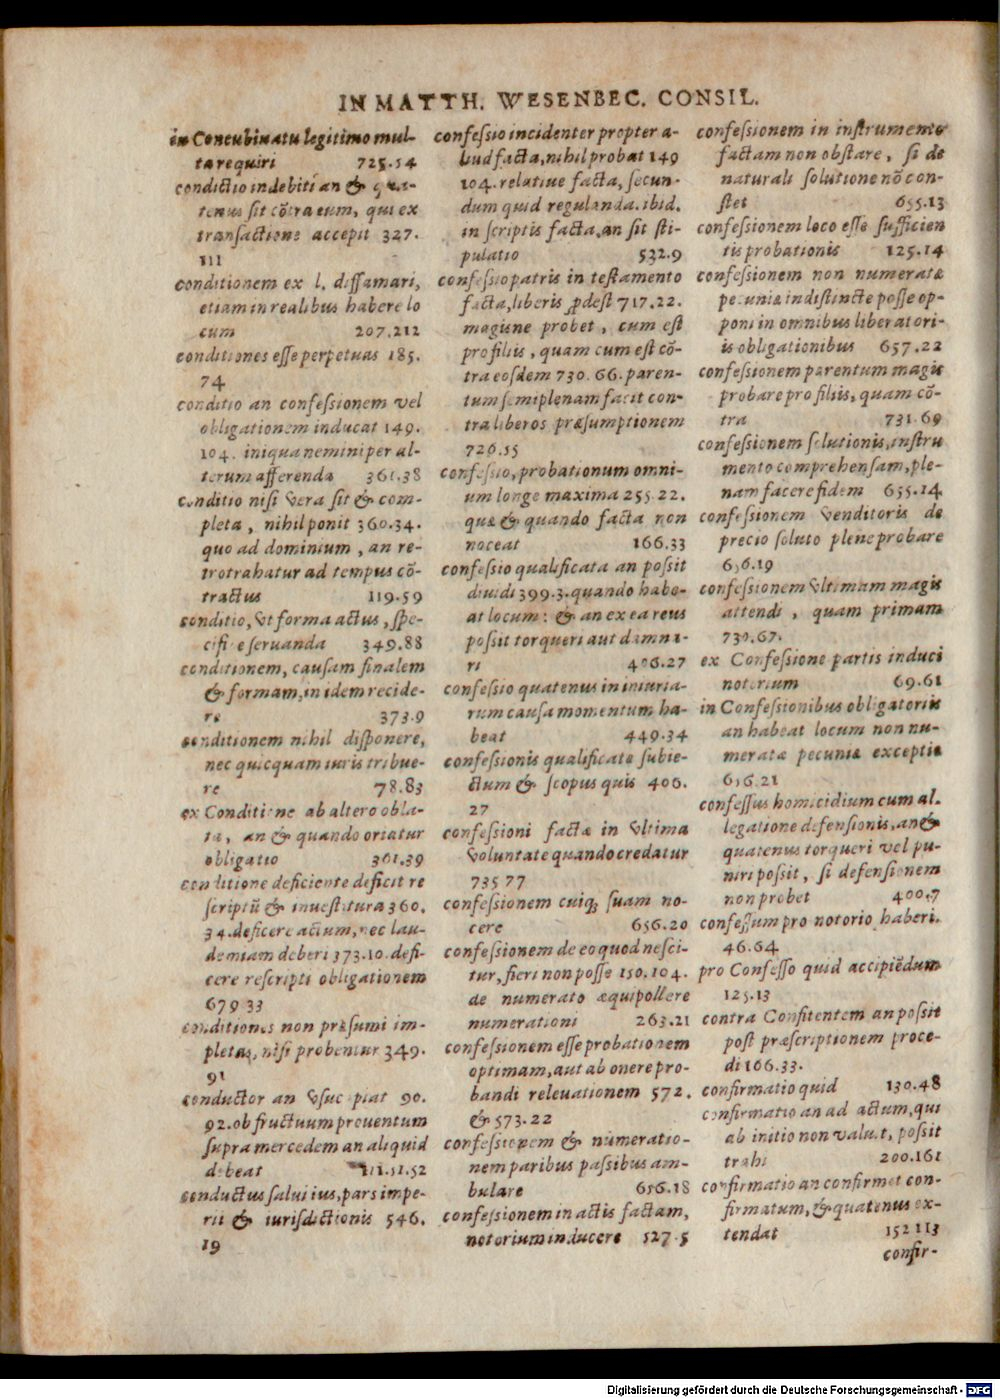 IN MATTH. WESENBEC. CONSIL.
in Concubinatu legitimo mul-
ta requiri 725.54
condictio indebiti an & qua-
tenus sit cōtra eum, qui ex
transactione accepit 327.
111
conditionem ex l. diffamari,
etiam in realibus habere lo
cum 207.212
conditiones esse perpetuas 185.
74
conditio an confessionem vel
obligationem inducat 149.
104. iniqua nemini per al-
terum afferenda 361.38
conditio nisi vera sit & com-
pleta, nihil ponit 360.34.
quo ad dominium, an re-
trotrahatur ad tempus cō-
tractus 119.59
conditio, vt forma actus, spe-
cifice seruanda 349.88
conditionem, causam finalem
& formam, in idem recide-
re 373.9
conditionem nihil disponere,
nec quicquam iuris tribue-
re 78.83
ex Conditione ab altero obla-
ta, an & quando oriatur
obligatio 361.39
conditione deficiente deficit re
scriptū & inuestitura 360.
34. deficere actum, nec lau-
demiam deberi 373.10. defi-
cere rescripti obligationem
679 33
conditiones non præsumi im-
pletas, nisi probentur 349.
91
conductor an vsucapiat 90.
92. ob fructuum prouentum
supra mercedem an aliquid
debeat 111.51.52
conductus salui ius, pars impe-
rii & iurisdictionis 546.
19
confessio incidenter propter a-
liud facta, nihil probat 149
104. relatiue facta, secun-
dum quid regulanda. ibid.
in scriptis facta, an sit sti-
pulatio 532.9
confessio patris in testamento
facta, liberis ꝓdest 717.22.
magisne probet, cum est
pro filiis, quam cum est cō-
tra eosdem 730.66. paren-
tum semiplenam facit con-
tra liberos præsumptionem
726.55
confessio, probationum omni-
um longe maxima 255.22.
quæ & quando facta non
noceat 166.33
confessio qualificata an possit
diuidi 399.3. quando habe-
at locum: & an ex ea reus
possit torqueri aut damna-
ri 406.27
confessio quatenus in iniuria-
rum causa momentum ha-
beat 449.34
confessionis qualificatæ subie-
ctum & scopus quis 406.
27
confessioni factæ in vltima
voluntate quando credatur
735 77
confessionem cuiq; suam no-
cere 656.20
confessionem de eo quod nesci-
tur, fieri non posse 150.104.
de numerato æquipollere
numerationi 263.21
confessionem esse probationem
optimam, aut ab onere pro-
bandi releuationem 572.
& 573.22
confessionem & numeratio-
nem paribus passibus am-
bulare 656.18
confessionem in actis factam,
notorium inducere 527.5
confessionem in instrumento
factam non obstare, si de
naturali solutione nō con-
stet 655.13
confessionem loco esse sufficien
tis probationis 125.14
confessionem non numeratæ
pecuniæ indistincte posse op-
poni in omnibus liberatori-
is obligationibus 657.22
confessionem parentum magis
probare pro filiis, quam cō-
tra 731.69
confessionem solutionis, instru
mento comprehensam, ple-
nam facere fidem 655.14
confessionem venditoris de
precio soluto plene probare
656.19
confessionem vltimam magis
attendi, quam primam
730.67.
ex Confessione partis induci
notorium 69.61
in Confessionibus obligatoriis
an habeat locum non nu-
meratæ pecuniæ exceptio
656.21
confessus homicidium cum al-
legatione defensionis, an &
quatenus torqueri vel pu-
niri possit, si defensionem
non probet 400.7
confessum pro notorio haberi.
46.64
pro Confesso quid accipiēdum
125.13
contra Confitentem an possit
post præscriptionem proce-
di 166.33.
confirmatio quid 130.48
confirmatio an ad actum, qui
ab initio non valuit, possit
trahi 200.161
confirmatio an confirmet con-
firmatum, & quatenus ex-
tendat 152 113
confir-
Digitalisierung gefördert durch die Deutsche Forschungsgemeinschaft - DFG